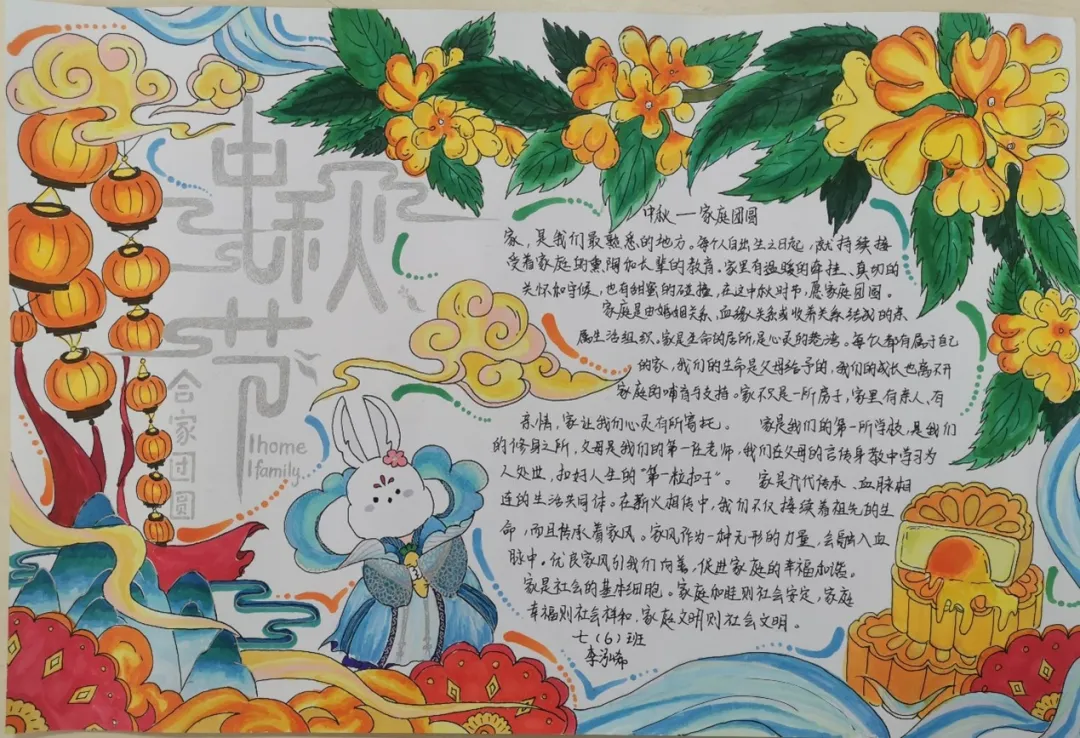 中秋节
合家团圆
home
family.
中秋—家庭团圆
家，是我们最熟悉的地方。每个人自出生之日起，就持续接
受着家庭的熏陶和长辈的教育。家里有温暖的牵挂、真切的
关怀和守候，也有甜蜜的碰撞，在这中秋时节，愿家庭团圆。
家庭是由婚姻关系、血缘关系或收养关系结成的亲
属生活组织。家是生命的居所，是心灵的港湾。每个人都有属于自己
的家，我们的生命是父母给予的，我们的成长也离不开
家庭的哺育与支持。家不只是一所房子，家里有亲人、有
亲情，家让我们心灵有所寄托。 家是我们的第一所学校，是我们
的修身之所，父母是我们的第一任老师，我们在父母的言传身教中学习为
人处世，扣好人生的“第一粒扣子”。 家是代代传承、血脉相
连的生活共同体。在薪火相传中，我们不仅接续着祖先的生
命，而且传承着家风。家风作为一种无形的力量，会融入血
脉中。优良家风引我们向善，促进家庭的幸福和谐。
家是社会的基本细胞。家庭和睦则社会安定，家庭
幸福则社会祥和，家庭文明则社会文明。
七（6）班
李